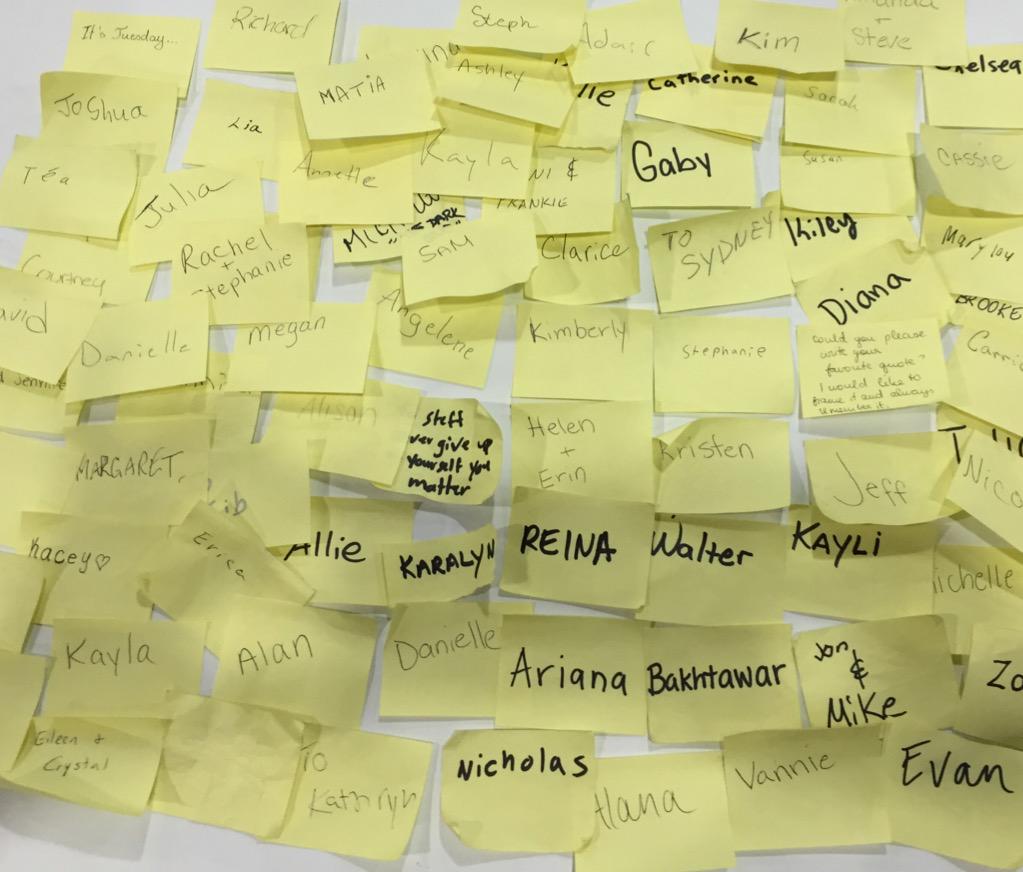 It's Tuesday...
Richard
Steph
Adair
Kim
+
Steve
Ashley
Catherine
Sarah
Chelsea
Joshua
Lia
MATiA
lle
Téa
Julia
Annette
Kayla
NI &
FRANKIE
Gaby
Susan
CASSIE
Rachel
+
Stephanie
DARK
SAM
Clarice
TO
SYDNEY
Kiley
Mary lou
Courtney
David
Danielle
megan
Angelene
Kimberly
Stephanie
Diana
BROOKE
Could you please
write your
favorite quote?
I would like to
frame it and always
remember it.
Alison
Steff
ver give up
yourself you
matter
Helen
+
Erin
Kristen
Jeff
Nico
MARGARET,
Kacey♡
Erica
Allie
KARALYN
REINA
Walter
KAYLi
ichelle
Kayla
Alan
Danielle
Ariana
Bakhtawar
Jon
&
MiKe
Zo
Eileen +
Crystal
TO
Kathryn
Nicholas
Alana
Vannie
Evan